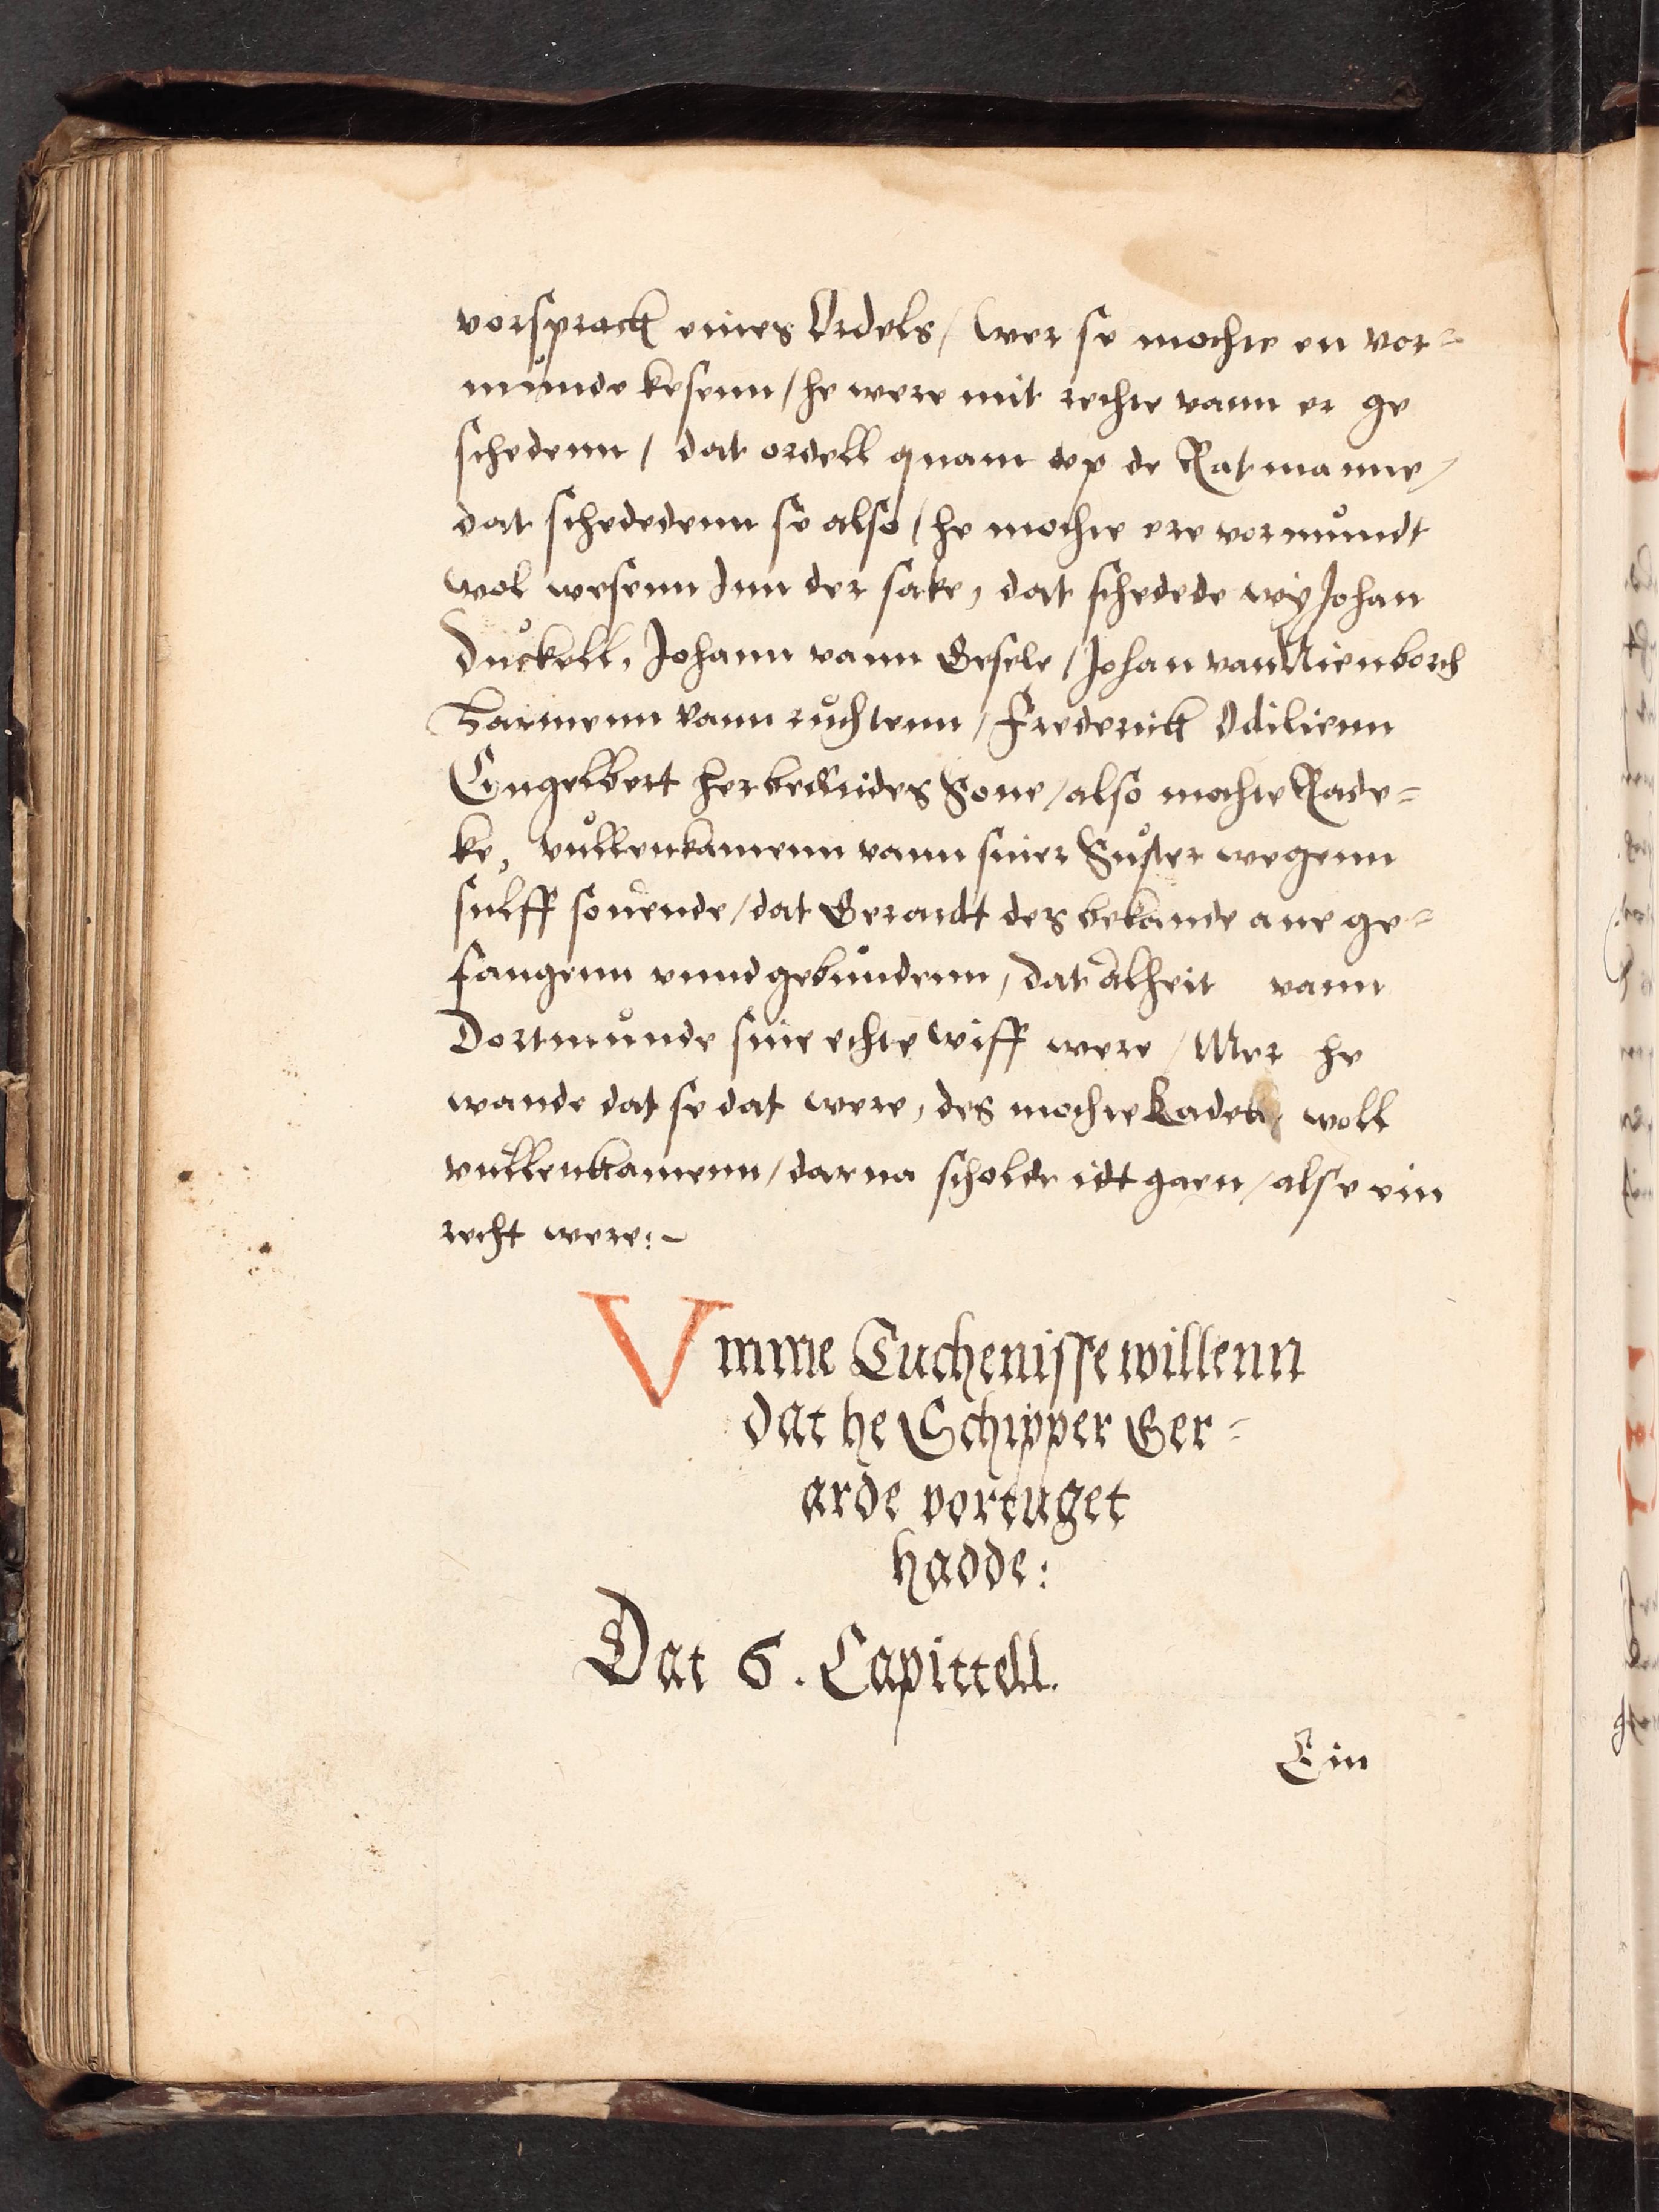 vorsprack eines Ordels / Wer se mochte en vor=
můnde kesenn / he were mit rechte vann er ge
schedenn / dat ordell quam vp de Ratmanne /
dat schededenn se also / he mochte ere vormůndt
wol wesenn Inn der sake, dat schedede wy Johan
Důckell, Johann vann Gesele / Johan van Nienborch
Harmenn vann růchtenn / Frederick Odilienn
Engelbert her Sone / also mochte Rade=
ke, vůllenkamenn vann siner Sůster wegenn
sulff söuende / dat Gerardt des bekande ane ge=
fangenn vnnd gebůndenn, dat Alheit vann
Dortmůnde sine echte wiff were / Mer he
wande dat se dat were, des mochte Radeke woll
vůllenkamenn / darna scholde idt gaen / alse ein
recht were:-
Vmme Tuchenisse willenn
dat he Schipper Ger=
arde vortuget
hadde:
Dat 6. Capittell.
Ein